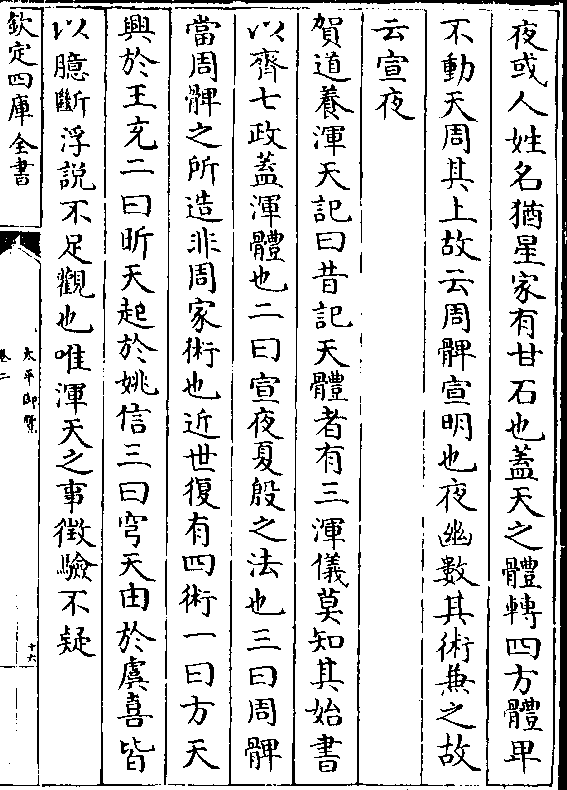 夜或人姓名猶星家有甘石也蓋天之體轉四方體卑
不動天周其上故云周髀宣明也夜幽數其術兼之故
云宣夜
賀道養渾天記曰昔記天體者有三渾儀莫知其始書
以齊七政蓋渾體也二曰宣夜夏殷之法也三曰周髀
當周髀之所造非周家術也近世復有四術一曰方天
興於王充二曰昕天起於姚信三曰穹天由於虞喜皆
以臆斷浮説不足觀也唯渾天之事徴驗不疑
欽定四庫全書
太平御覽
卷二
十六